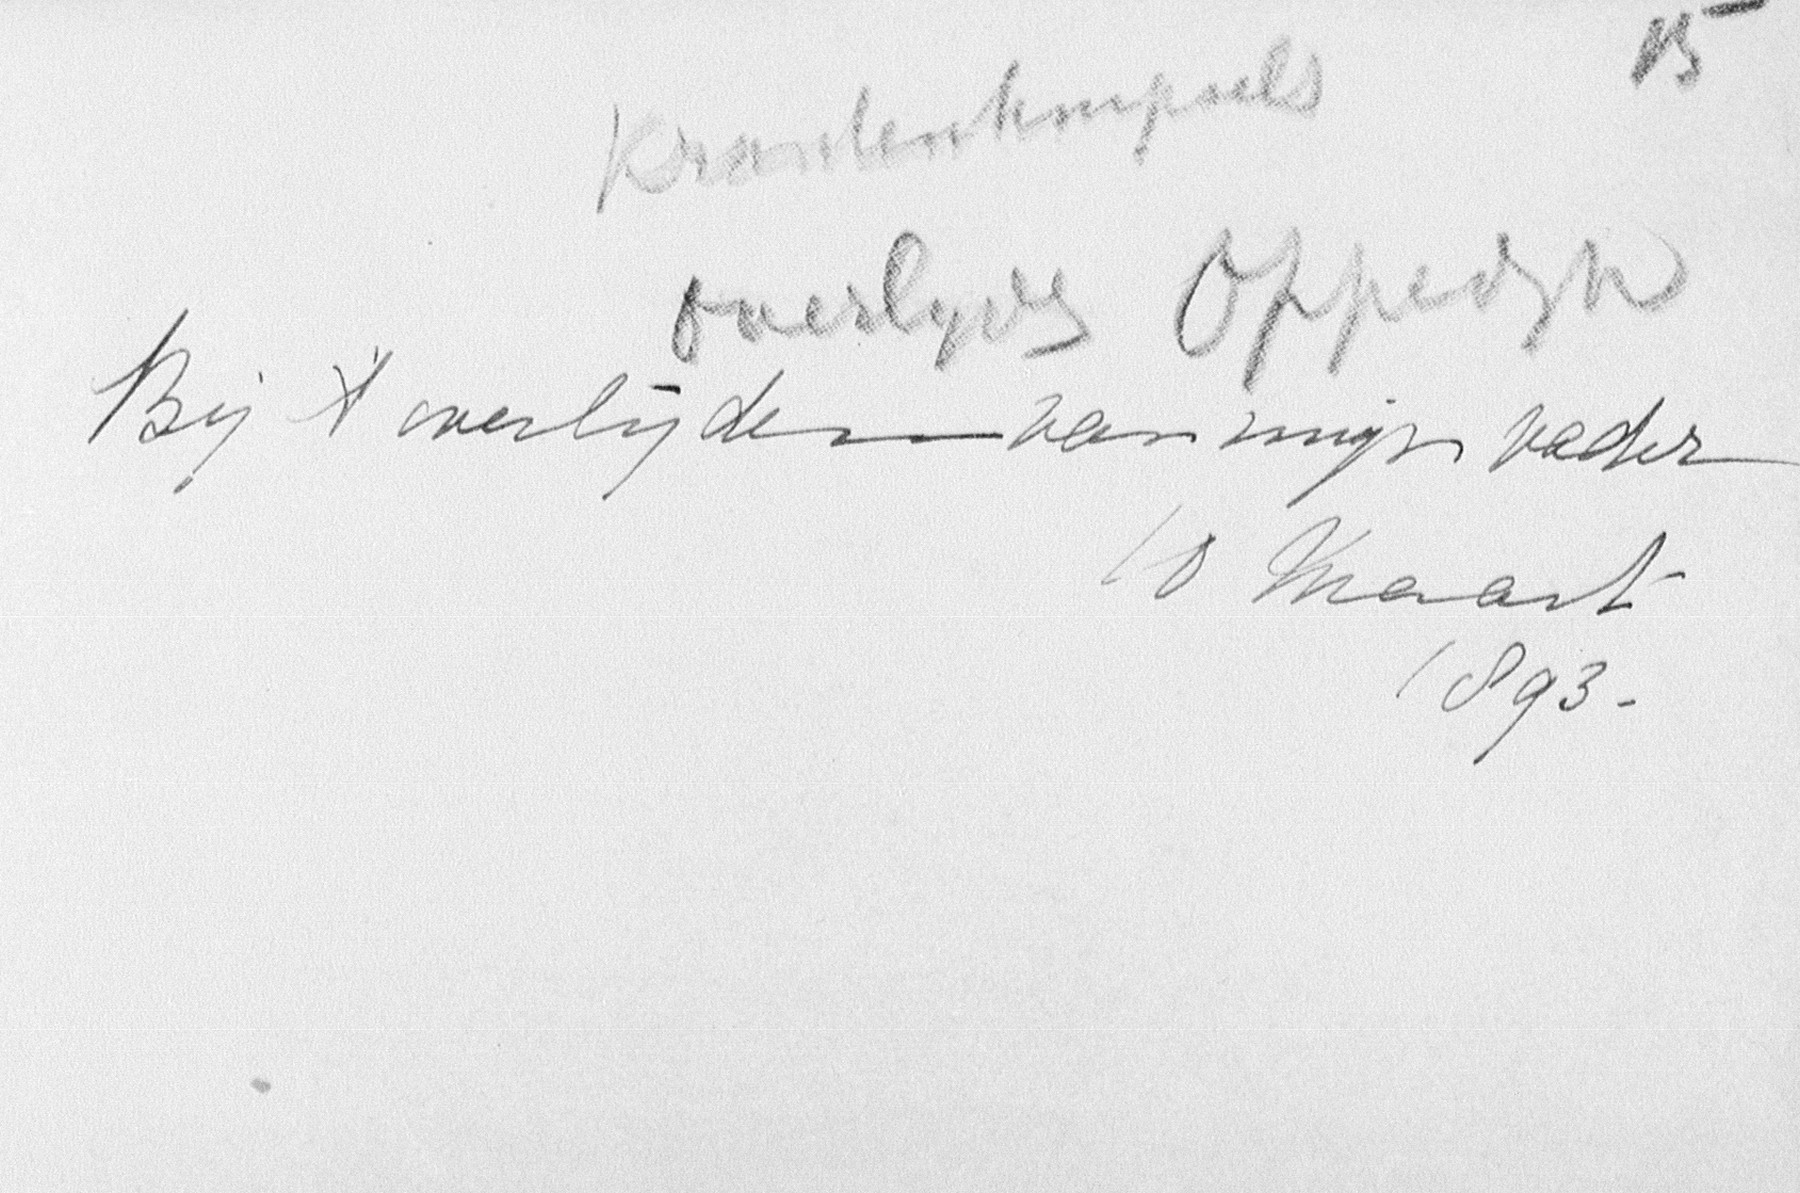 15
Krantenknipsels
overlijden Oppedijk
Bij 't overlijden van mijn vader
10 Maart
1893.-